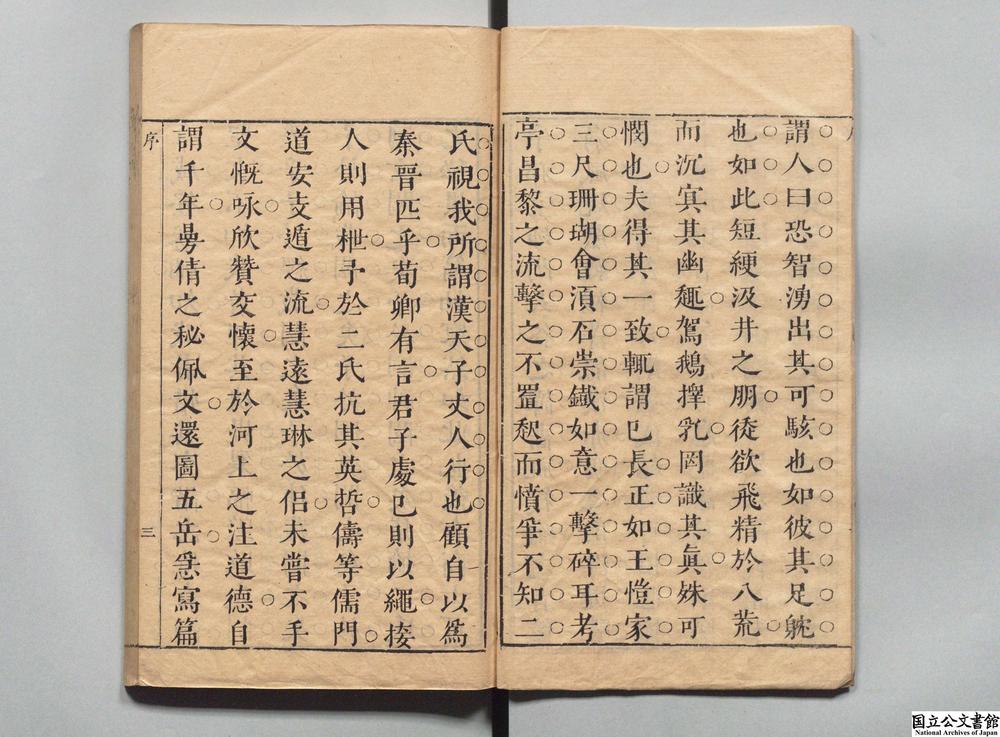 謂人曰恐智湧出其可駭也如彼其足躭
也如此短綆汲井之朋徒欲飛精於八荒
而沉㝠其幽趣駕鵝擇乳罔識其眞姝可
憫也夫得其一致輒謂已長正如王愷家
三尺珊瑚會湏石崇鐵如意一擊碎耳考
亭昌黎之流擊之不置愁而憤爭不知二
氏視我所謂漢天子丈人行也顧自以爲
秦晉匹乎荀卿有言君子處已則以繩接
人則用枻予於二氏抗其英哲儔等儒門
道安支遁之流慧遠慧琳之侶未嘗不手
文慨咏欣贊交懷至於河上之注道德自
謂千年曼倩之秘佩文還圖五岳急寫篇
序
三
国立公文書館
National Archives of Japan